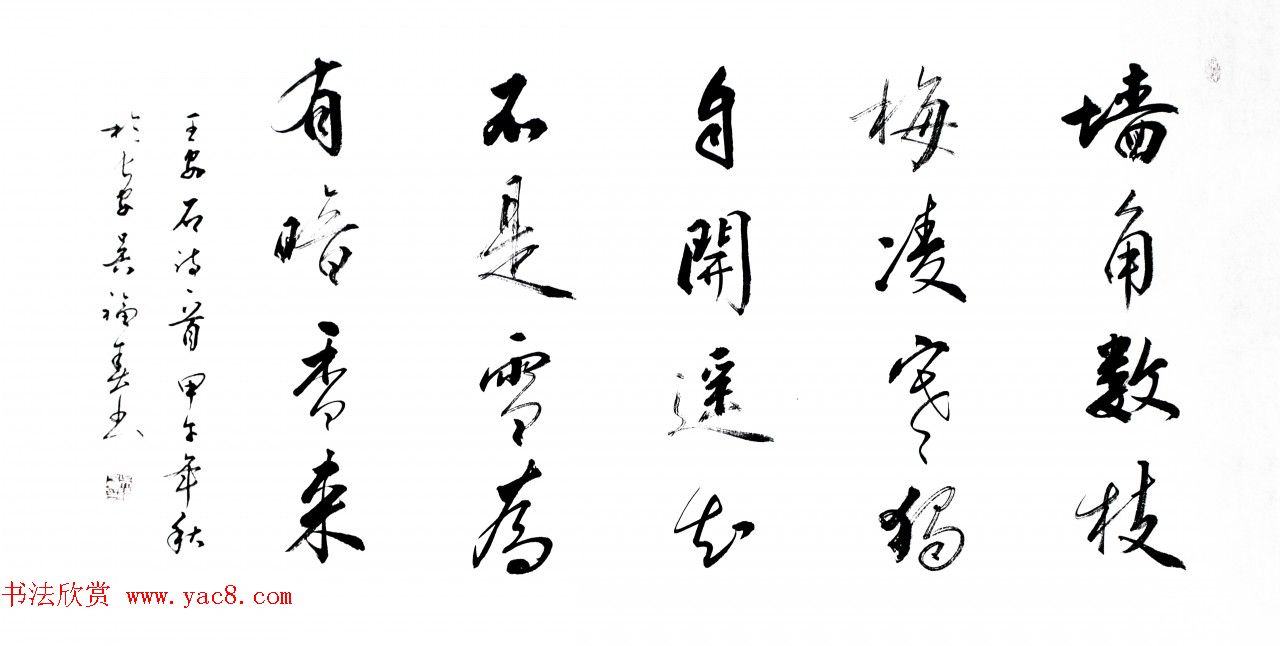 墙角数枝
梅凌寒獨
自開遥知
不是雪為
有暗香来
王安石诗一首甲午年秋
於长安吴福春书
书法欣赏 www.yac8.com